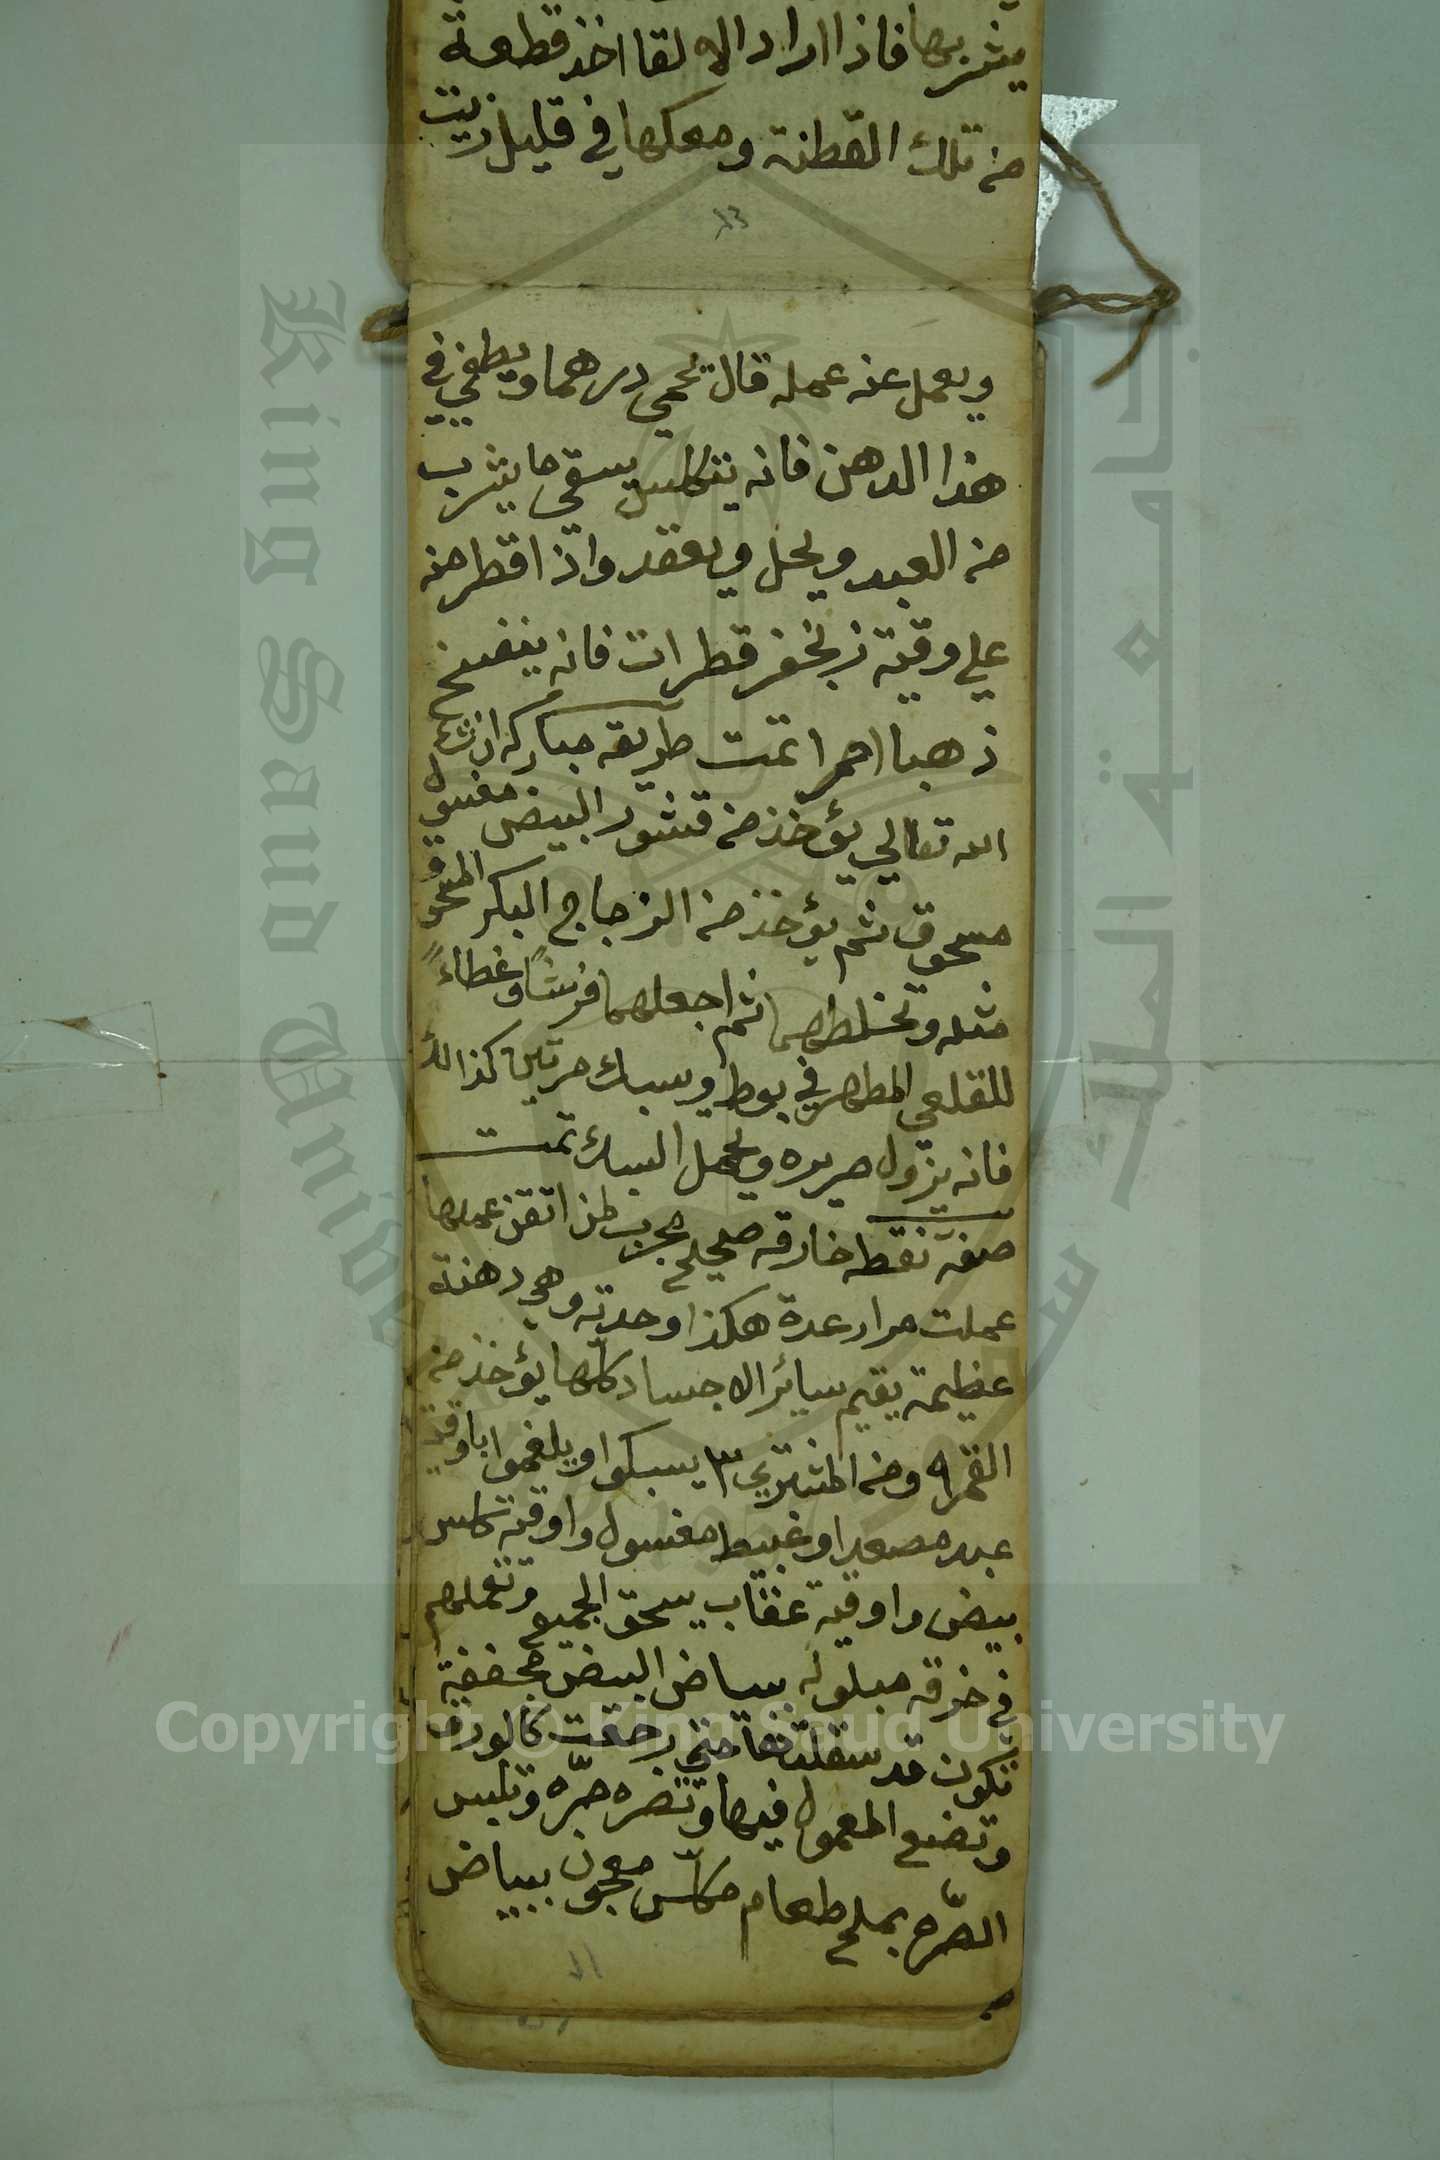 يشربها فاذا اراد الالقا اخذ قطعة
من تلك القطنة ومعكها في قليل زيت
ويعمل عنه عمله قال يحمي درهما ويطفي في
هذا الدهن فانه يتكلس يسقي ما يشرب
من العبد ويحل ويعقد واذا قطر منه
علي وقية زنجفر قطرات فانه ينفسخ
ذهبا احمرا تمت طريقه مباركه ان شاء
الله تعالي يؤخذ من قشور البيض مغسول
مسحوق ثم يؤخذ من الزجاج البكر المسحوق
مثله وتخلطهما ثم اجعلهما فرشًا وغطاءً
للقلعي المطهر في بوط وسبك مرتين كذالك
فانه يزول صريره ويحمل السبك تمت
صفة نقطه خارقه صحيح مجرب لمن اتقن عملها
عملت مرار عدة هكذا وجدته وهي دهنة
عظيمة يقيم سائر الاجساد كلّها يؤخذ من
القمر ٩ ومن المشتري ٣ يسبكوا ويلغموا باوقية
عبد مصعد او غبيط مغسول واوقية كلس
بيض واوقية عقاب يسحق الجميع وتعملهم
في خرقه مبلوله ببياض البيض مجففة
تكون قد سقلتها حتي رجعت كالورق
وتضع المعمول فيها وتصره صرّه وتلبس
الصّره بملح طعام مكلّس معجون ببياض
King Saud University
جامعة الملك سعود
1957
Copyright © King Saud University